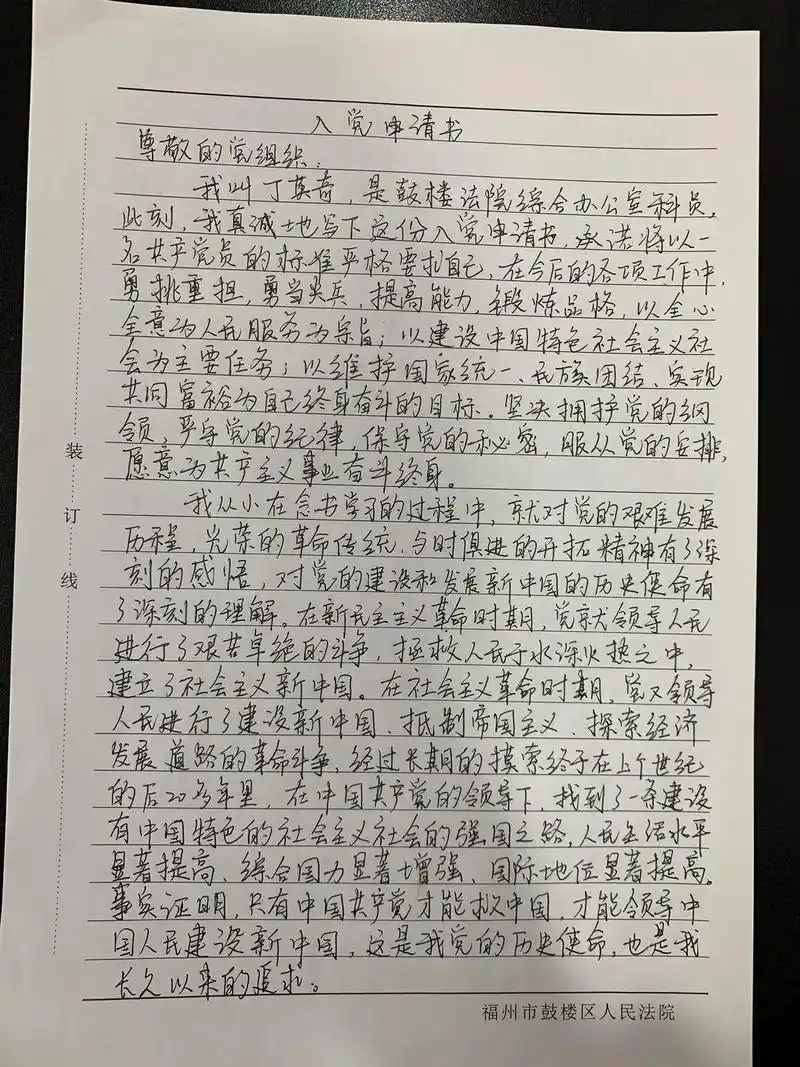 入党申请书
尊敬的党组织：
我叫丁英奇，是鼓楼法院综合办公室科员。
此刻，我真诚地写下这份入党申请书，承诺将以一
名共产党员的标准严格要扎自己，在今后的各项工作中，
勇挑重担，勇当尖兵，提高能力，锻炼品格，以全心
全意为人民服务为宗旨；以建设中国特色社会主义社
会为主要任务；以维护国家统一、民族团结、实现
共同富裕为自己终身奋斗的目标。坚决拥护党的纲
领，严守党的纪律，保守党的秘密，服从党的安排，
愿意为共产主义事业奋斗终身。
我从小在念书学习的过程中，就对党的艰难发展
历程，光荣的革命传统，与时俱进的开拓精神有了深
刻的感悟，对党的建设和发展新中国的历史使命有
了深刻的理解。在新民主主义革命时期，党就领导人民
进行了艰苦卓绝的斗争，拯救人民于水深火热之中，
建立了社会主义新中国。在社会主义革命时期，党又领导
人民进行了建设新中国、抵制帝国主义、探索经济
发展道路的革命斗争，经过长期的摸索终于在上个世纪
的后20多年里，在中国共产党的领导下，找到了一条建设
有中国特色的社会主义社会的强国之路，人民生活水平
显著提高、综合国力显著增强、国际地位显著提高。
事实证明，只有中国共产党才能救中国，才能领导中
国人民建设新中国，这是我党的历史使命，也是我
长久以来的追求。
装
订
线
福州市鼓楼区人民法院